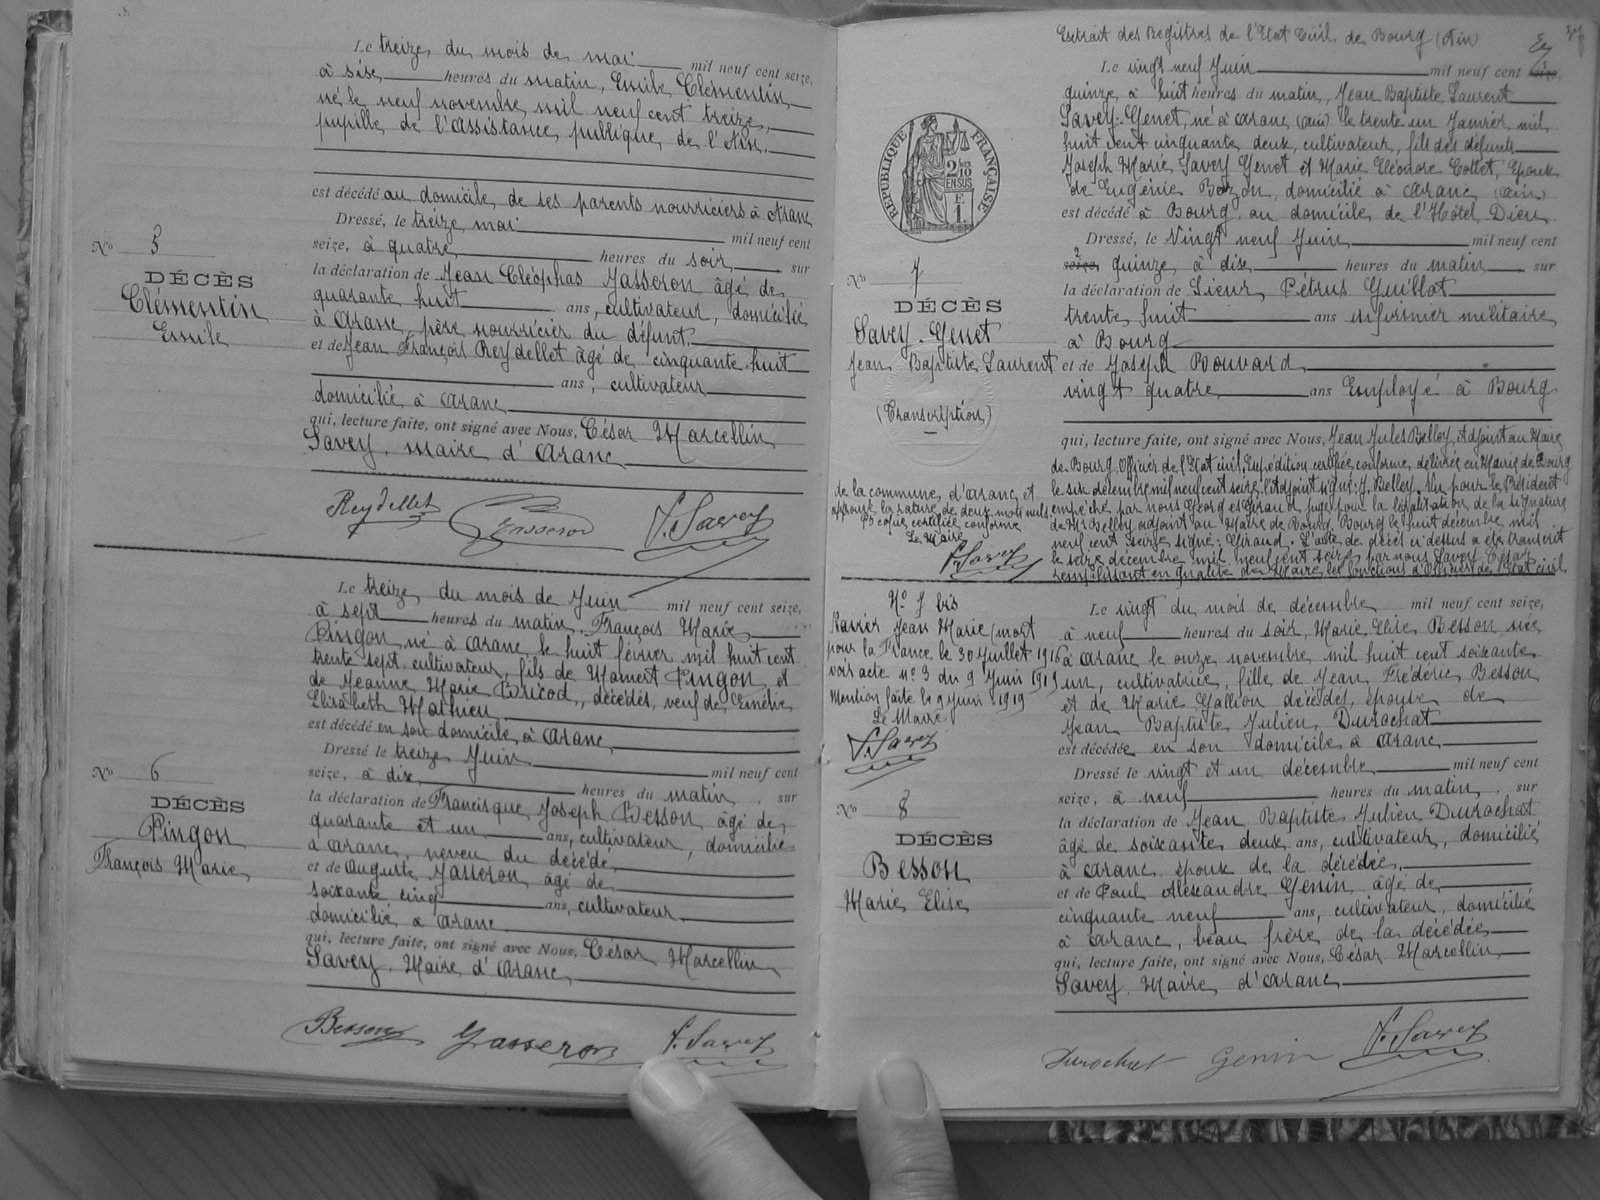 Le treize du mois de mai mil neuf cent seize,
à six heures du matin, Emile Clémentin
né le neuf novembre mil neuf cent treize,
pupille de l'Assistance publique de l'Ain.
est décédé au domicile de ses parents nourriciers à Aranc
Dressé, le treize mai mil neuf cent
seize, à quatre heures du soir, sur
la déclaration de Jean Cléophas Jasseron âgé de
quarante huit ans, cultivateur, domicilié
à Aranc, père nourricier du défunt,
et de Jean François Reydellet âgé de cinquante huit
ans, cultivateur
domicilié à Aranc
qui, lecture faite, ont signé avec Nous, César Marcellin
Savey, maire d'Aranc
Reydellet Jasseron Savey
No 5
DÉCÈS
Clémentin
Emile
Le treize du mois de Juin mil neuf cent seize,
à sept heures du matin, François Marie
Pingon né à Aranc le huit février mil huit cent
trente sept, cultivateur, fils de Mamert Pingon et
de Jeanne Marie Bricod, décédés, veuf de Emélie
Elisabeth Mathieu
est décédé en son domicile à Aranc
Dressé le treize Juin mil neuf cent
seize, à dix heures du matin, sur
la déclaration de Francisque Joseph Besson âgé de
quarante et un ans, cultivateur, domicilié
à Aranc, neveu du décédé
et de Auguste Jasseron âgé de
soixante cinq ans, cultivateur
domicilié à Aranc
qui, lecture faite, ont signé avec Nous, César Marcellin
Savey, Maire d'Aranc
Besson Jasseron Savey
No 6
DÉCÈS
Pingon
François Marie
Extrait des Registres de l'Etat Civil de Bourg (Ain)
Le vingt neuf Juin mil neuf cent seize
quinze à huit heures du matin, Jean Baptiste Laurent
Savey-Genet, né à Aranc (Ain) le trente un Janvier mil
huit cent cinquante deux, cultivateur, fils des défunts
Joseph Marie Savey Genet et Marie Eléonore Collet, Epoux
de Eugénie Bozon, domicilié à Aranc (Ain)
est décédé à Bourg au domicile de l'Hôtel Dieu
Dressé, le Vingt neuf Juin mil neuf cent
seize, quinze, à dix heures du matin sur
la déclaration de Sieur Pétrus Guillot
trente huit ans infirmier militaire
à Bourg
et de Joseph Bouvard
vingt quatre ans Employé à Bourg
qui, lecture faite, ont signé avec Nous, Jean Jules Belley, Adjoint au Maire
de Bourg, Officier de l'Etat civil. Expédition certifiée conforme, délivrée en Mairie de Bourg
le six décembre mil neuf cent seize. l'Adjoint signé: J. Belley. Vu pour le Président
empêché par nous Georges Giraud juge pour la légalisation de la signature
de Mr Belley adjoint au Maire de Bourg. Bourg le huit décembre mil
neuf cent seize signé: Giraud. L'acte de décès ci dessus a été transcrit
le seize décembre mil neuf cent seize par nous Savey César
remplissant en qualité de Maire les fonctions d'Officier de l'Etat civil
de la commune d'Aranc et
approuvé la rature de deux mots nuls
Pr copie certifiée conforme
Le Maire
Savey
RÉPUBLIQUE FRANÇAISE
2
10
EN SUS
F.
1.
No 7
DÉCÈS
Savey-Genet
Jean Baptiste Laurent
(Transcription)
No 7 bis
Jean Marie (mort
pour la France le 30 Juillet 1916
voir acte no 3 du 9 Juin 1919
Mention faite le 9 Juin 1919
Le Maire
Savey
Le vingt du mois de décembre mil neuf cent seize,
à neuf heures du soir, Marie Elise Besson née
à Aranc le onze novembre mil huit cent soixante
un, cultivatrice, fille de Jean Frédéric Besson
et de Marie Gallion décédés, épouse de
Jean Baptiste Julien Durochat
est décédée en son domicile à Aranc
Dressé le vingt et un décembre mil neuf cent
seize, à neuf heures du matin, sur
la déclaration de Jean Baptiste Julien Durochat
âgé de soixante deux ans, cultivateur, domicilié
à Aranc, époux de la décédée,
et de Paul Alexandre Genin, âgé de
cinquante neuf ans, cultivateur, domicilié
à Aranc, beau frère de la décédée
qui, lecture faite, ont signé avec Nous, César Marcellin
Savey, Maire d'Aranc
Durochat Genin Savey
No 8
DÉCÈS
Besson
Marie Elise